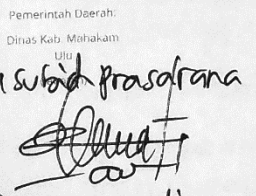 Pemerintah Daerah:
Dinas Kab. Mahakam
Ulu
subid prasarana